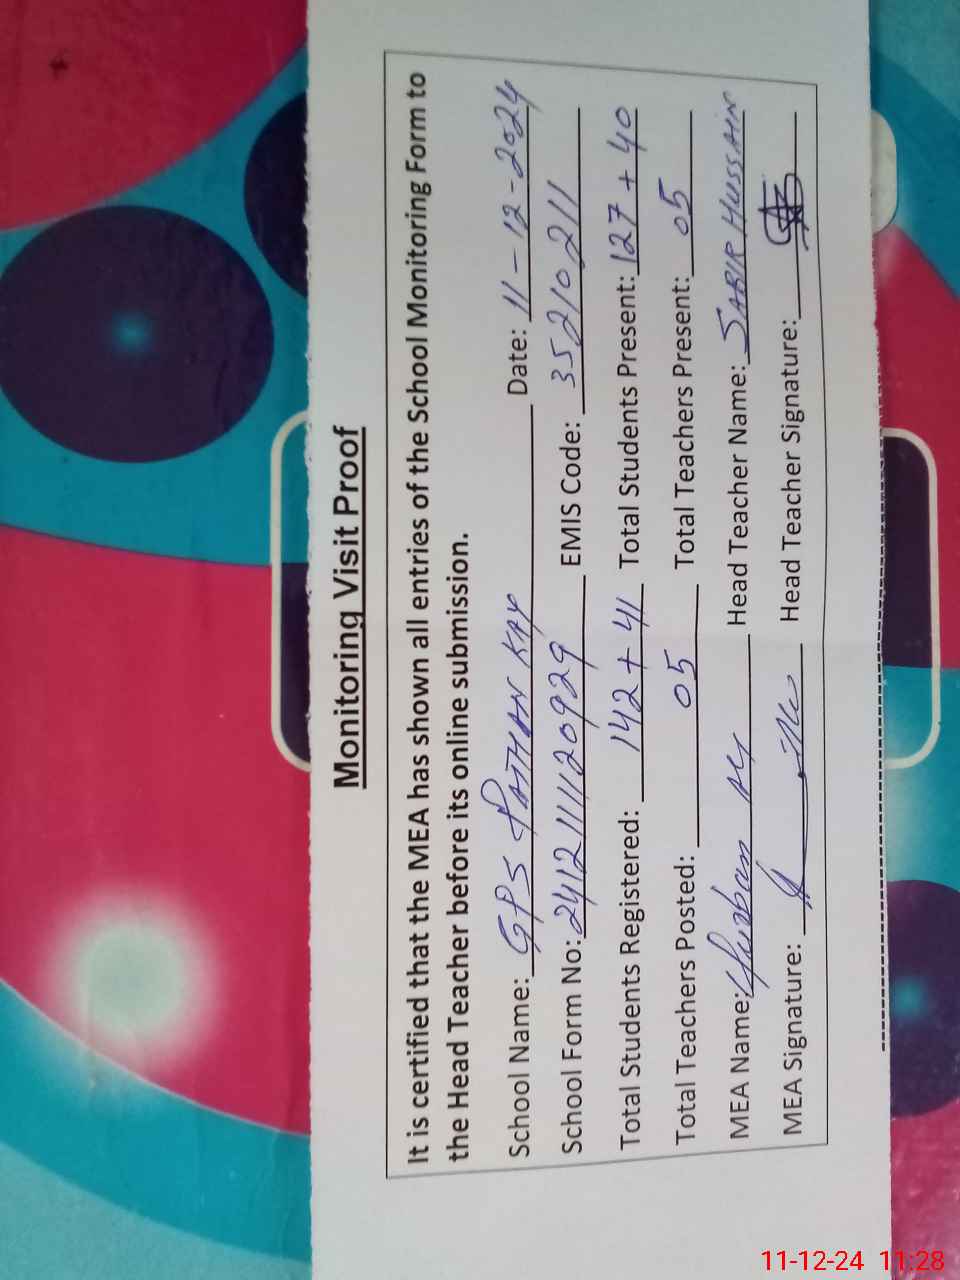 Monitoring Visit Proof
It is certified that the MEA has shown all entries of the School Monitoring Form to
the Head Teacher before its online submission.
School Name: GPS PATHAN KAY Date: 11-12-2024
School Form No: 2412111120929 EMIS Code: 35210211
Total Students Registered: 142 + 41 Total Students Present: 127 + 40
Total Teachers Posted: 05 Total Teachers Present: 05
MEA Name: Head Teacher Name: SABIR HUSSAIN
MEA Signature: Head Teacher Signature:
11-12-24 11:28